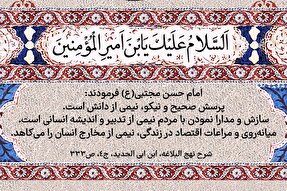 اَلسَّلامُ عَلَیْكَ یَابْنَ اَمیرِ الْمُؤْمِنینَ
امام حسن مجتبی(ع) فرمودند:
پرسش صحیح و نیکو، نیمی از دانش است.
سازش و مدارا نمودن با مردم نیمی از تدبیر و اندیشه انسانی است.
میانه‌روی و مراعات اقتصاد در زندگی، نیمی از مخارج انسان را می‌کاهد.
شرح نهج البلاغه، ابن ابی الحدید، ج٤، ص٣٣٣